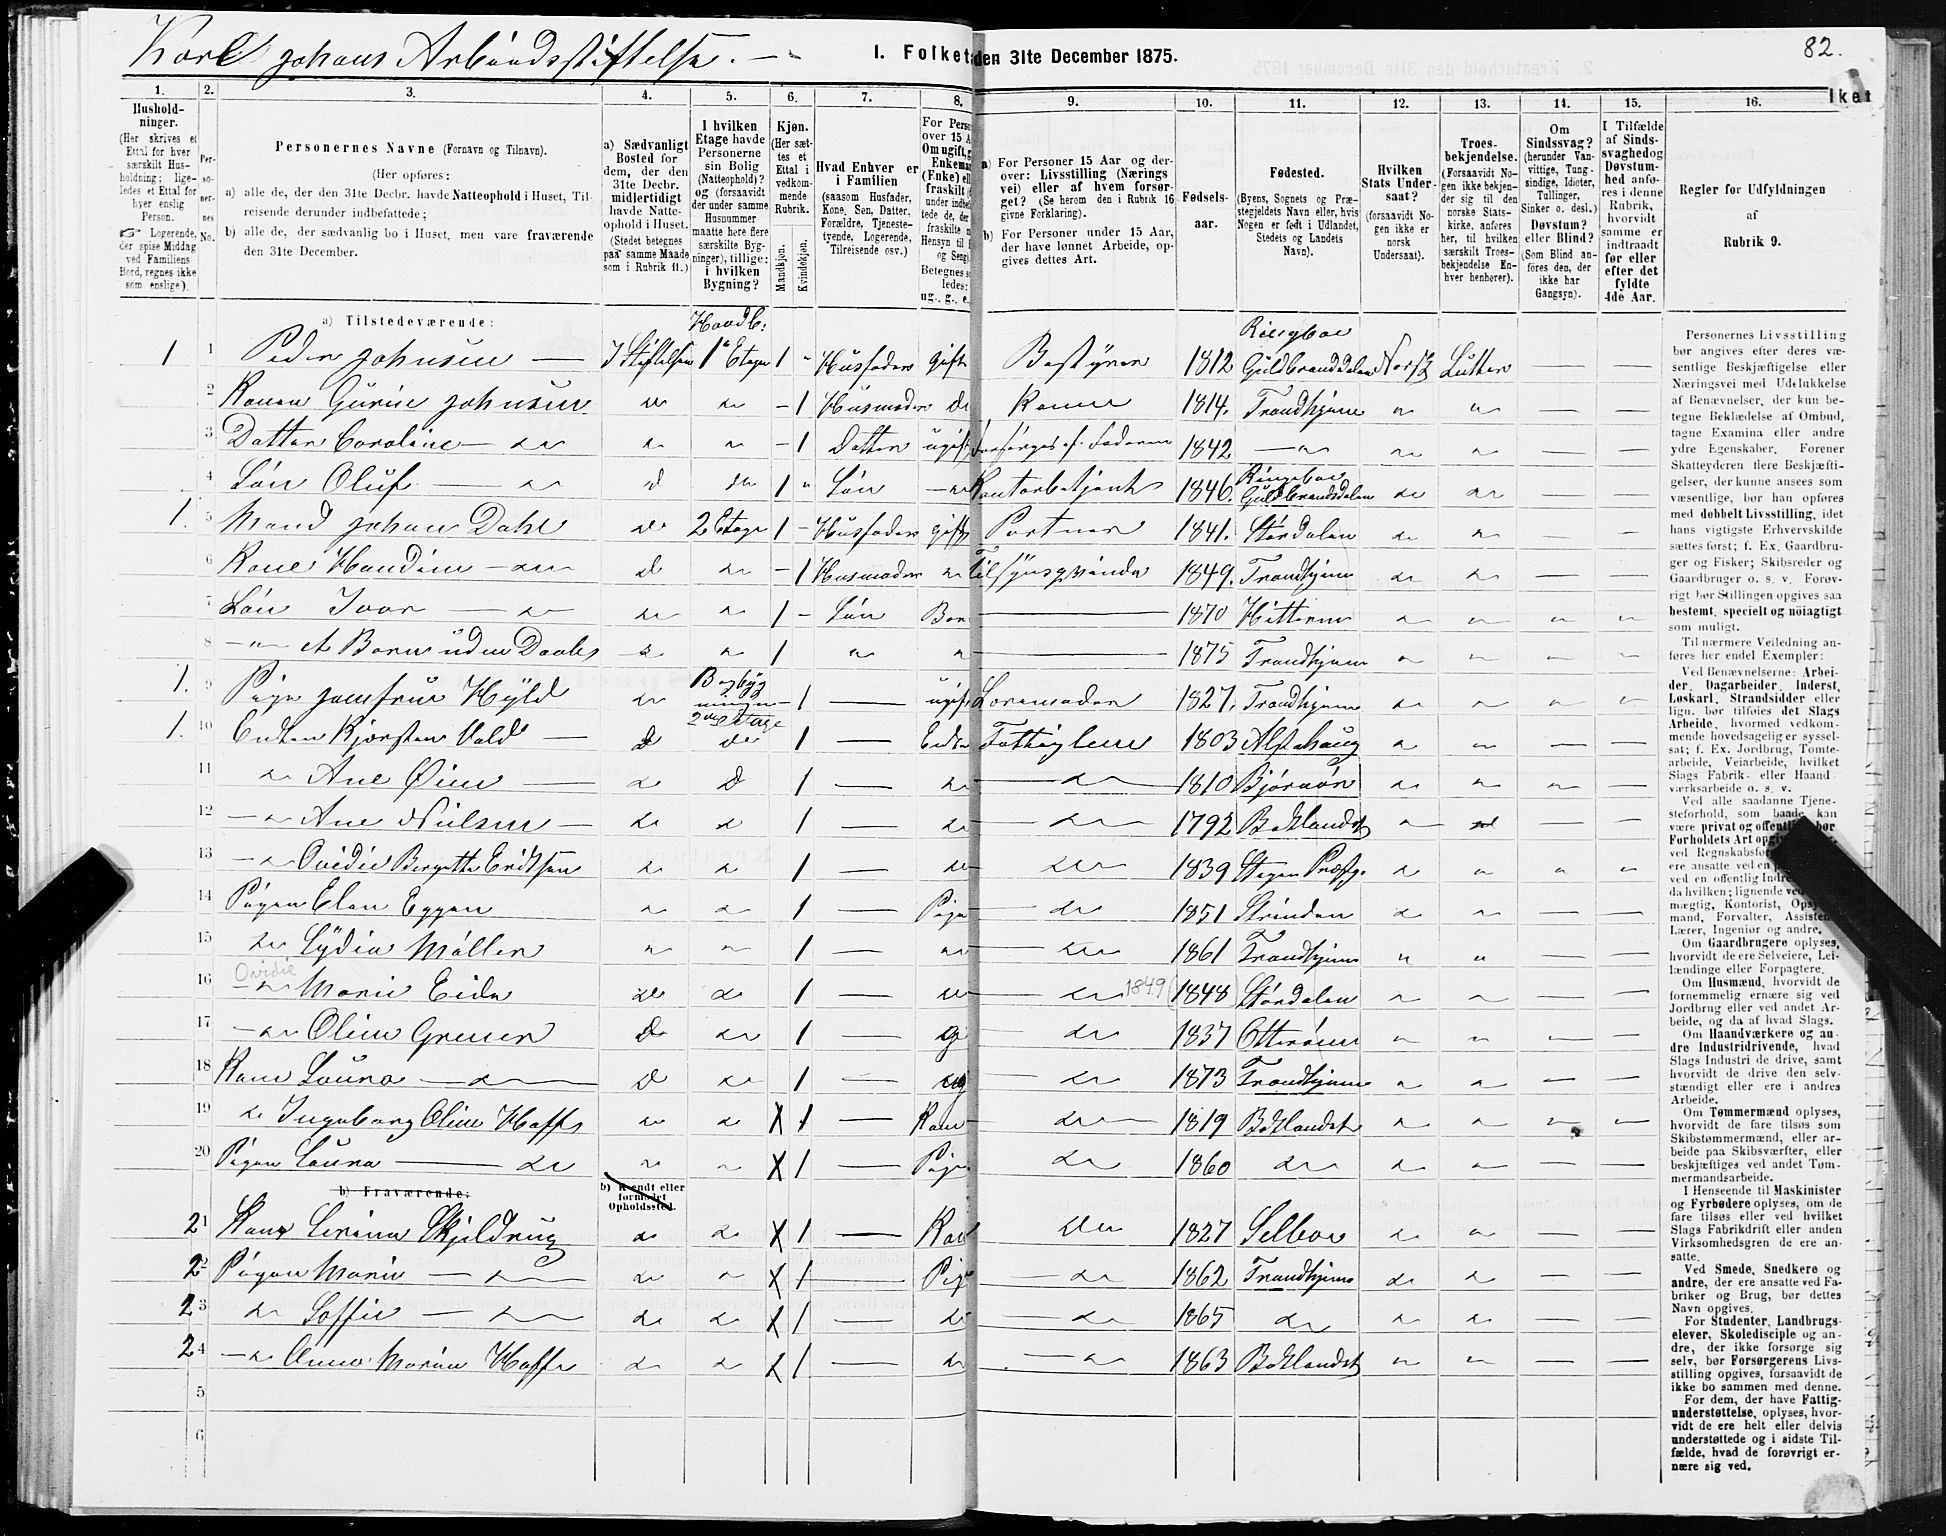 Karl Johans Arbeidsstiftelse. —
1. Folket den 31te December 1875.
82.
lket
1. 2. 3. 4. 5. 6. 7. 8. 9. 10. 11. 12. 13. 14. 15. 16.
Hushold-
ninger.
(Her skrives et
Ettal for hver
særskilt Hus-
holdning; lige-
ledes et Ettal for
hver enslig
Person.
☞ Logerende,
der spise Middag
ved Familiens
Bord, regnes ikke
som enslige).
Per-
so-
ner-
nes
No.
Personernes Navne (Fornavn og Tilnavn).
(Her opføres:
a) alle de, der den 31te Decbr. havde Natteophold i Huset, Til-
reisende derunder indbefattede;
b) alle de, der sædvanlig bo i Huset, men vare fraværende
den 31te December.
a) Sædvanligt
Bosted for
dem, der den
31te Decbr.
midlertidigt
havde Natte-
ophold i Huset.
(Stedet betegnes
paa samme Maade
som i Rubrik 11.)
I hvilken
Etage havde
Personerne
sin Bolig
(Natteophold)?
og (forsaavidt
der under samme
Husnummer
maatte høre flere
særskilte Byg-
ninger), tillige:
i hvilken
Bygning?
Kjøn.
(Her sæt-
tes et
Ettal i
vedkom-
mende
Rubrik.
Mandkjøn.
Kvindekjøn.
Hvad Enhver er
i Familien
(saasom Husfader,
Kone, Søn, Datter,
Forældre, Tjeneste-
tyende, Logerende,
Tilreisende osv.)
For Perso
over 15 A
Om ugift, g
Enkema
(Enke) ell
fraskilt (
under indbe
tede de, der
fraskilte
Hensyn til
og Seng
Betegnes s
ledes:
ug., g., e.,
a) For Personer 15 Aar og der-
over: Livsstilling (Nærings
vei) eller af hvem forsør-
get? (Se herom den i Rubrik 16
givne Forklaring).
b) For Personer under 15 Aar,
der have lønnet Arbeide, op-
gives dettes Art.
Fødsels-
aar.
Fødested.
(Byens, Sognets og Præ-
stegjeldets Navn eller, hvis
Nogen er født i Udlandet,
Stedets og Landets
Navn).
Hvilken
Stats Under-
saat?
(forsaavidt No-
gen ikke er
norsk
Undersaat).
Troes-
bekjendelse.
(Forsaavidt No-
gen ikke bekjen-
der sig til den
norske Stats-
kirke, anføres
her, til hvilken
særskilt Troes-
bekjendelse En-
hver henhører).
Om
Sindssvag?
(herunder Van-
vittige, Tung-
sindige, Idioter,
Tullinger,
Sinker o. desl.)
Døvstum?
eller Blind?
(Som Blind an-
føres den, der
ikke har
Gangsyn).
I Tilfælde
af Sinds-
svaghed og
Døvstum-
hed anfø-
res i denne
Rubrik,
hvorvidt
samme er
indtraadt
før eller
efter det
fyldte
4de Aar.
Regler for Udfyldningen
af
Rubrik 9.
a) Tilstedeværende:
1 1 Peder Johnsen — I Stiftelsen 1ste Etage 1 " Husfader gift Bestyrer 1812 Ringeboe Guldbrandsdalen Norsk Luther — —
2 Konen Gurine Johnsen do do – 1 Husmoder do Kone 1814. Trondhjem " " — —
3 Datter Caroline — do " " – 1 Datter ugift forsørges af Faderen 1842 — " " " — —
4 Søn Oluf — do d do 1 " Søn — " Kontorbetjent 1846. Ringeboe Guldbrandsdalen do do — —
1. 5 Mand Johan Dahl do 2 Etage 1 – Husfader gift Portner 1841. Størdalen do " — —
6 Kone Handine — do d do – 1 Husmoder " Tilsynsqvinde 1849. Trondhjem do do — —
7 Søn Ivar — do do " 1 – Søn Barn — 1870 Hitteren " " " "
8 — " et Barn uden Daab do " 1 " " — 1875 Trondhjem " " — —
1. 9 Pige Jomfrue Hyld do Bagbyg ningen 2den Etage – 1 — ugift Læremoder 1827. Trondhjem " " " —
1. 10 Enken Kjersten Vold — d do 1 — Enke Fattiglem 1803 Alstahaug " " — —
11 do Ane Øien — do d 1 — do — do — 1810 Bjørnør do " " —
12 — do Ane Nielsen — do d 1 — do do 1792 Baklandet " d — —
13 — do Ovidie Bergitte Eridtsen do do 1 — do do 1839 Præstg. do " " "
14 Pigen Elen Eggen " do 1 — Pige — do 1851 Strinden do " — —
15 do Lydia Møller " " 1 — " — do 1861 Trondhjem " " — —
Ovidie
16 — " Marie Eide do do 1 — do — do 1849 (1848) Størdalen " " — —
17 — do Oline Grener d do 1 — g do 1837 Otterøen " " — —
18 Kone Laura — do — d do 1 — ug do 1873 Trondhjem " " — —
19 do Ingeborg Oline Haffs do do X 1 — Kone do 1819 Baklandet " " — —
20 Pigen Laura — do do " X 1 — Pige do 1860 do do " — —
b) Fraværende:
b) Kjendt eller
formodet
Opholdssted.
21 Kone Serina Skjeldrug do do X 1 — Kone do 1827 Selboe do " — —
22 Pigen Marie — do do " X 1 — Pige — do 1862 Trondhjem do do — —
23 do Soffie — do do do X 1 — do — do 1865 do do do — —
24 — do Anna Marine Haffs do do X 1 — do — do 1863 Baklandet " " — —
5
6
Personernes Livsstilling
bør angives efter deres væ-
sentlige Beskjæftigelse eller
Næringsvei med Udelukkelse
af Benævnelser, der kun be-
tegne Beklædelse af Ombud,
tagne Examina eller andre
ydre Egenskaber. Forener
Skatteyderen flere Beskjæfti-
gelser, der kunne ansees som
væsentlige, bør han opføres
med dobbelt Livsstilling, idet
hans vigtigste Erhvervskilde
sættes først; f. Ex. Gaardbru-
ger og Fisker; Skibsreder og
Gaardbruger o. s. v. Forøv-
rigt bør Stillingen opgives saa
bestemt, specielt og nöiagtigt
som muligt.
Til nærmere Veiledning an-
føres her endel Exempler:
Ved Benævnelserne: Arbei-
der, Dagarbeider, Inderst,
Løskarl, Strandsidder eller
lign. bør tilføies det Slags
Arbeide, hvormed vedkom-
mende hovedsagelig er syssel-
sat; f. Ex. Jordbrug, Tomte-
arbeide, Veiarbeide, hvilket
Slags Fabrik- eller Haand-
værksarbeide o. s. v.
Ved alle saadanne Tjene-
steforhold, som baade kan
være privat og offentlig, bør
Forholdets Art opgi
ved Regnskabsfø
ere ansatte ved en
ved en offentlig Indre
da hvilken; lignende ved
mægtig, Kontorist, Opsy
mand, Forvalter, Assisten
Lærer, Ingeniør og andre.
Om Gaardbrugere oplyses,
hvorvidt de ere Selveiere, Lei-
lændinge eller Forpagtere.
Om Husmænd, hvorvidt de
fornemmelig ernære sig ved
Jordbrug eller ved andet Ar-
beide, og da af hvad Slags.
Om Haandværkere og an-
dre Industridrivende, hvad
Slags Industri de drive, samt
hvorvidt de drive den selv-
stændigt eller ere i andres
Arbeide.
Om Tømmermænd oplyses,
hvorvidt de fare tilsøs som
Skibstømmermænd, eller ar-
beide paa Skibsværfter, eller
beskjæftiges ved andet Tøm-
mermandsarbeide.
I Henseende til Maskinister
og Fyrbødere oplyses, om de
fare tilsøs eller ved hvilket
Slags Fabrikdrift eller anden
Virksomhedsgren de ere an-
satte.
Ved Smede, Snedkere og
andre, der ere ansatte ved Fa-
briker og Brug, bør dettes
Navn opgives.
For Studenter, Landbrugs-
elever, Skoledisciple og an-
dre, der ikke forsørge sig
selv, bør Forsørgerens Livs-
stilling opgives, forsaavidt de
ikke bo sammen med denne.
For dem, der have Fattig-
understøttelse, oplyses, hvor-
vidt de ere helt eller delvis
understøttede og i sidste Til-
fælde, hvad de forøvrigt er-
nære sig ved.